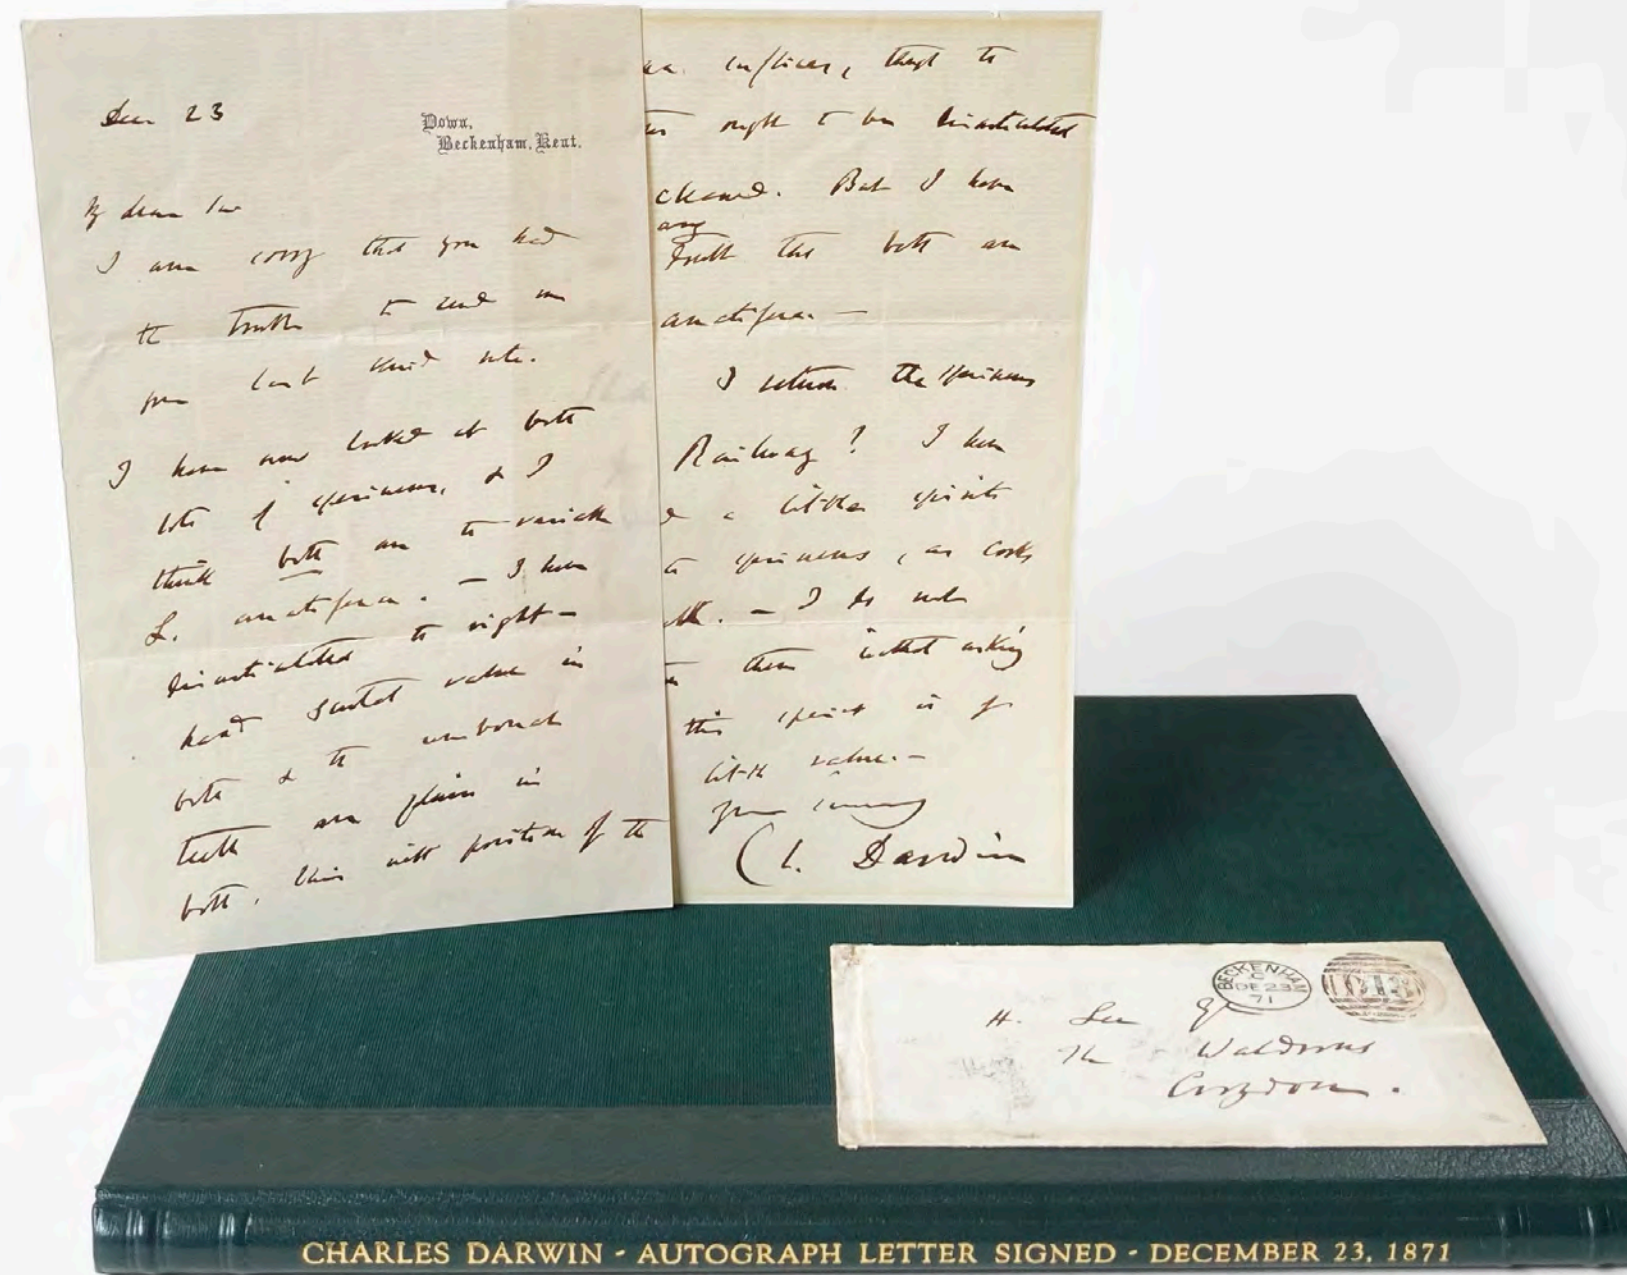 Dec 23
Down,
Beckenham, Kent.
My dear Sir
I am sorry that you had
the trouble to send me
your last kind note.
I have now looked at both
lots of specimens, & I
think both are the variable
L. anatifera. — I have
disarticulated the right-
hand scutal valve in
both & the umbonal
teeth are plain in
both, this with position of the
to
ought to be disarticulated
cleaned. But I have
any
doubt that both are
anatifera —
I return the specimens
Railway? I have
a little spirits
specimens, as corks
. — I do not
them without asking
this spirit is of
little value. —
Yours sincerely
Ch. Darwin
BECKENHAM
C
DE 23
71
H. Lee Esq
The Waldrons
Croydon.
CHARLES DARWIN - AUTOGRAPH LETTER SIGNED - DECEMBER 23, 1871